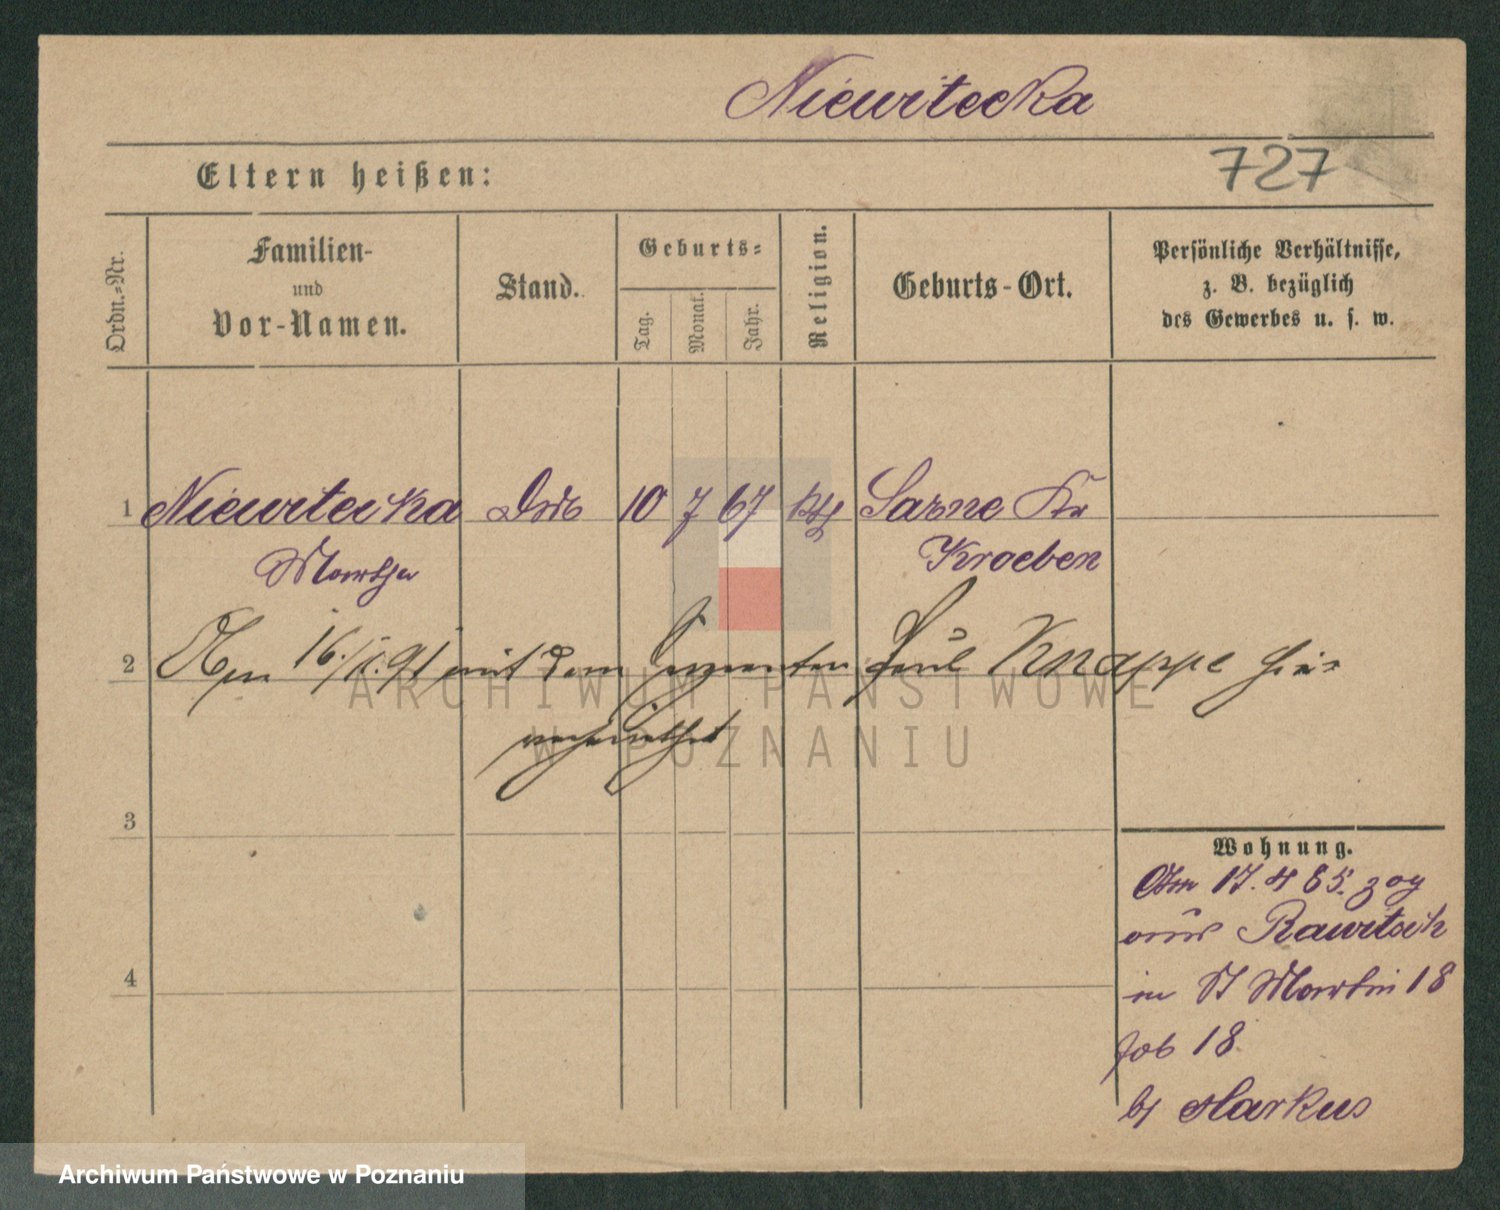 Niewitecka
Eltern heißen:
727
Ordn.-Nr.
Familien-
und
Vor-Namen.
Stand.
Geburts-
Tag.
Monat.
Jahr.
Religion.
Geburts-Ort.
Persönliche Verhältnisse,
z. B. bezüglich
des Gewerbes u. s. w.
1 Niewitecka 10 7 67 kth Sarne Kr
Martha Kroeben
2 Am 16./ 91 mit dem Paul Knappe hier
verheirathet
3
4
Wohnung.
Am 17. 4 85. zog
aus Rawitsch
in St Martin 18
18
b/ Markus
ARCHIWUM PAŃSTWOWE
W POZNANIU
Archiwum Państwowe w Poznaniu